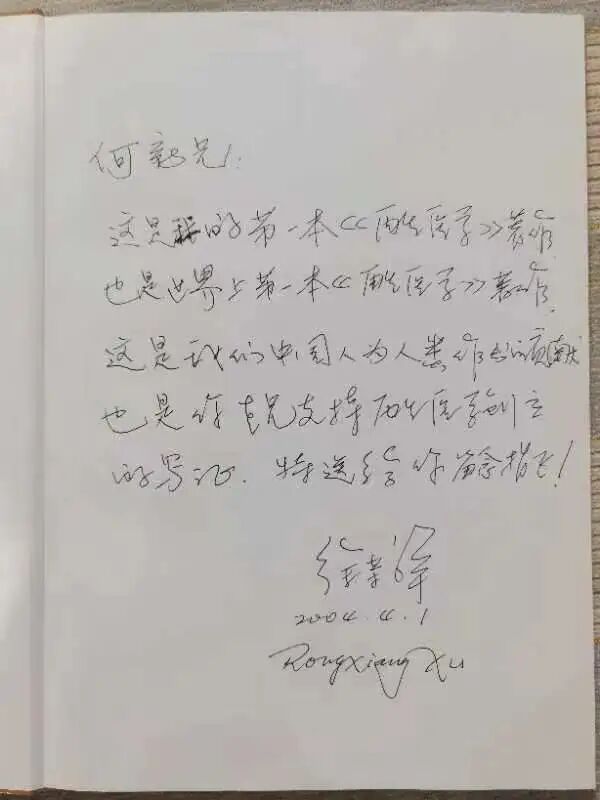 何新兄:
这是我的第一本《再生医学》著作.
也是世界上第一本《再生医学》著作.
这是我们中国人为人类作出的贡献
也是你 兄支持再生医学创立
的写证. 特送给你留念指正!
徐荣祥
2004.4.1
Rongxiang Xu